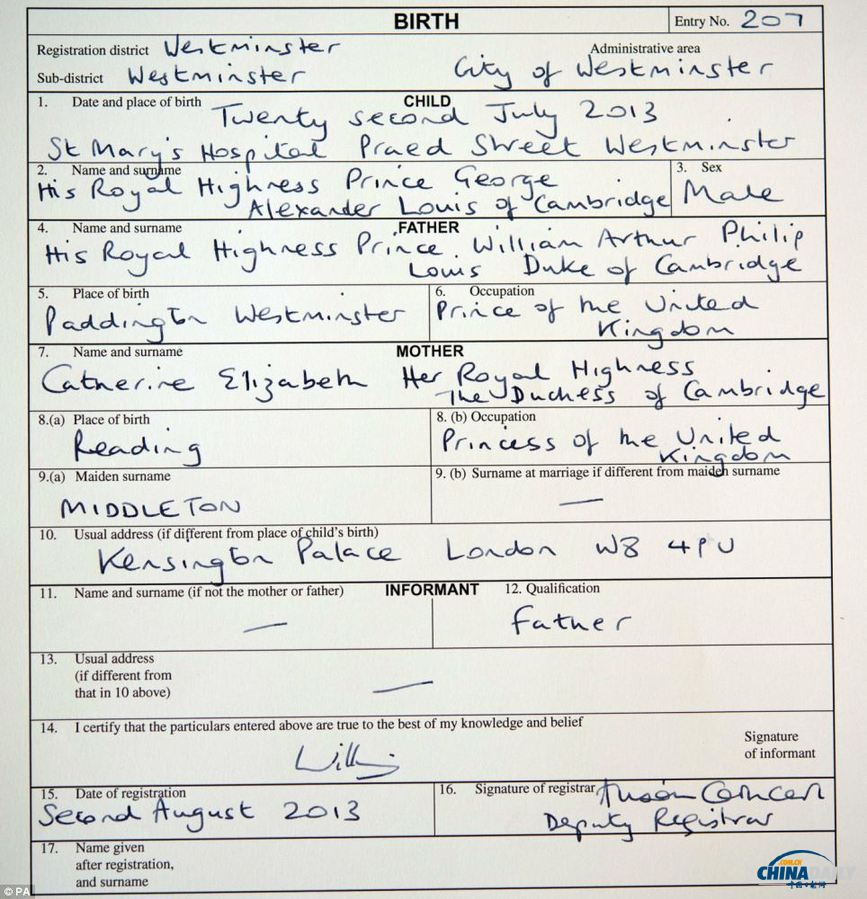 BIRTH
Entry No. 207
Registration district Westminster
Administrative area
Sub-district Westminster
City of Westminster
CHILD
1. Date and place of birth
Twenty second July 2013
St Mary's Hospital Praed Street Westminster
2. Name and surname
His Royal Highness Prince George
Alexander Louis of Cambridge
3. Sex
Male
FATHER
4. Name and surname
His Royal Highness Prince William Arthur Philip
Louis Duke of Cambridge
5. Place of birth
Paddington Westminster
6. Occupation
Prince of the United
Kingdom
MOTHER
7. Name and surname
Catherine Elizabeth Her Royal Highness
The Duchess of Cambridge
8.(a) Place of birth
Reading
8. (b) Occupation
Princess of the United
Kingdom
9.(a) Maiden surname
MIDDLETON
9. (b) Surname at marriage if different from maiden surname
—
10. Usual address (if different from place of child's birth)
Kensington Palace London W8 4PU
INFORMANT
11. Name and surname (if not the mother or father)
—
12. Qualification
Father
13. Usual address
(if different from
that in 10 above)
—
14. I certify that the particulars entered above are true to the best of my knowledge and belief
Signature
of informant
15. Date of registration
Second August 2013
16. Signature of registrar
Deputy Registrar
17. Name given
after registration,
and surname
© PA
.COM.CN
CHINADAILY
中国日报网